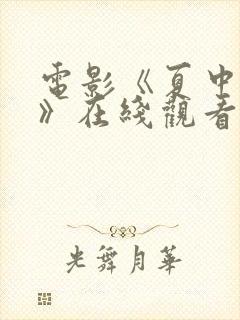 電影《夏中
》在綫觀看
光舞月華